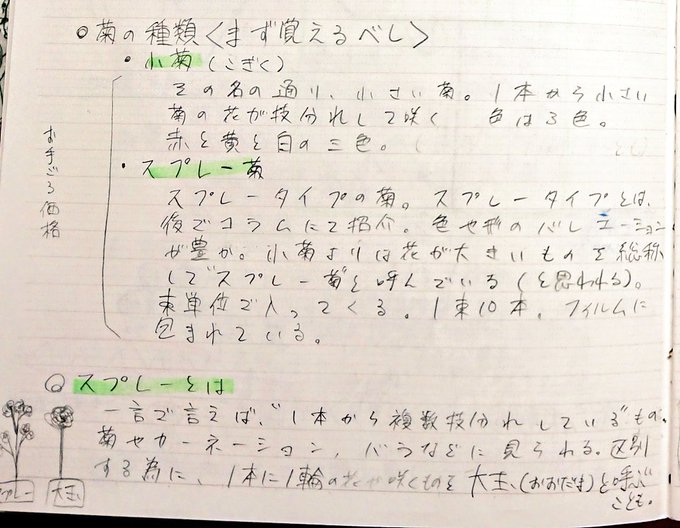 ○菊の種類〈まず覚えるべし〉
・小菊(こぎく)
その名の通り、小さい菊。1本から小さい
菊の花が枝分れして咲く 色は3色。
赤と黄と白の三色。
お手ごろ価格
・スプレー菊
スプレータイプの菊。スプレータイプとは、
後でコラムにて紹介。色や形のバリエーション
が豊か。小菊よりは花が大きいものを総称
して"スプレー菊"と呼んでいる(と思われる)。
束単位で入ってくる。1束10本。フィルムに
包まれている。
◎スプレーとは
一言で言えば、"1本から複数枝分れしている"もの。
菊やカーネーション、バラなどに見られる。区別
する為に、1本に1輪の花が咲くものを大玉(おおだま)と呼ぶ
ことも。
プレー
大玉